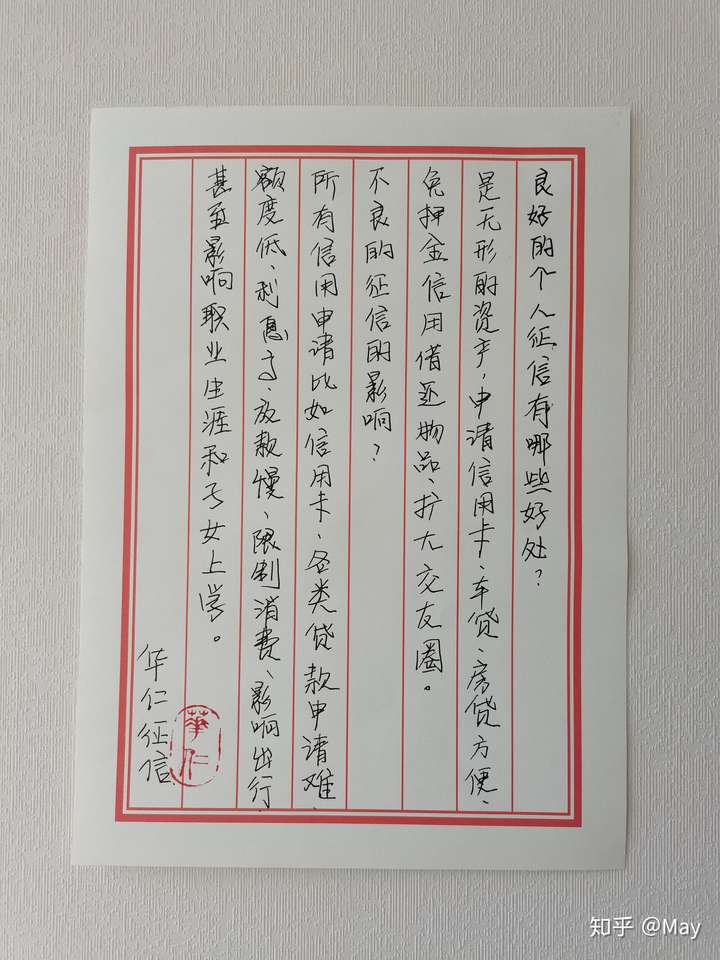 良好的个人征信有哪些好处?
是无形的资产,申请信用卡、车贷、房贷方便、
免押金信用借还物品、扩大交友圈。
不良的征信的影响?
所有信用申请比如信用卡、各类贷款申请难、
额度低、利息高、放款慢、限制消费、影响出行、
甚至影响职业生涯和子女上学。
华仁征信
華仁
知乎 @May